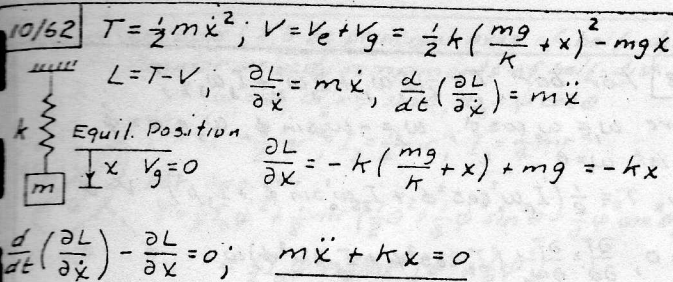 10/62 T = ½mẋ²; V = Ve + Vg = ½k(mg/k + x)² - mgx
L = T - V; ∂L/∂ẋ = mẋ, d/dt(∂L/∂ẋ) = mẍ
k
Equil. Position
x Vg = 0
m
∂L/∂x = -k(mg/k + x) + mg = -kx
d/dt(∂L/∂ẋ) - ∂L/∂x = 0; mẍ + kx = 0